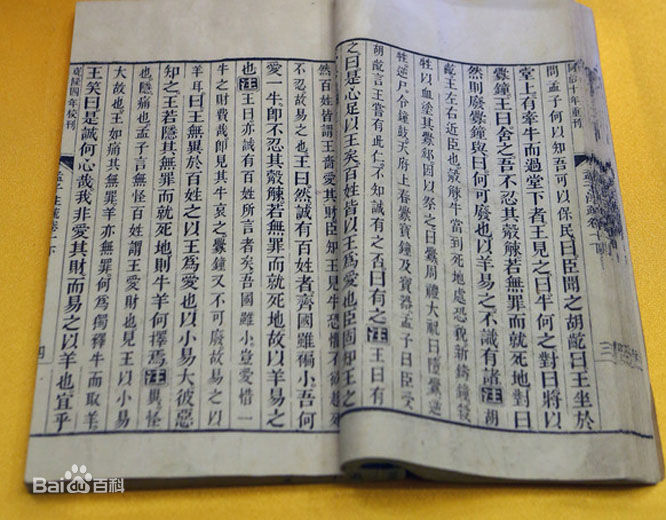 同治十年重刊
問孟子何以知吾可以保民曰臣聞之胡齕曰王坐於
堂上有牽牛而過堂下者王見之曰牛何之對曰將以
釁鐘王曰舍之吾不忍其觳觫若無罪而就死地對曰
然則廢釁鐘與曰何可廢也以羊易之不識有諸注胡
齕王左右近臣也觳觫牛當到死地處恐貌新鑄鐘殺
牲以血塗其釁郄因以祭之曰釁周禮大祝曰隋釁逆
牲逆尸令鐘鼓天府上春釁寶鐘及寶器孟子曰臣受
胡齕言王嘗有此仁不知誠有之否曰有之注王曰有
之曰是心足以王矣百姓皆以王為愛也臣固知王之
然百姓皆謂王嗇愛其財臣知王見牛恐懼不欲趨死
不忍故易之也王曰然誠有百姓者齊國雖褊小吾何
愛一牛即不忍其觳觫若無罪而就死地故以羊易之
也注王曰亦誠有百姓所言者矣吾國雖小豈愛惜一
牛之財費哉即見其牛哀之釁鐘又不可廢故易之以
羊耳曰王無異於百姓之以王為愛也以小易大彼惡
知之王若隱其無罪而就死地則牛羊何擇焉注異怪
也隱痛也孟子言無怪百姓謂王愛財也見王以小易
大故也王如痛其無罪羊亦無罪何為獨釋牛而取羊
王笑曰是誠何心哉我非愛其財而易之以羊也宜乎
乾隆四年校刊
孟子注疏卷一下
四
Baidu百科